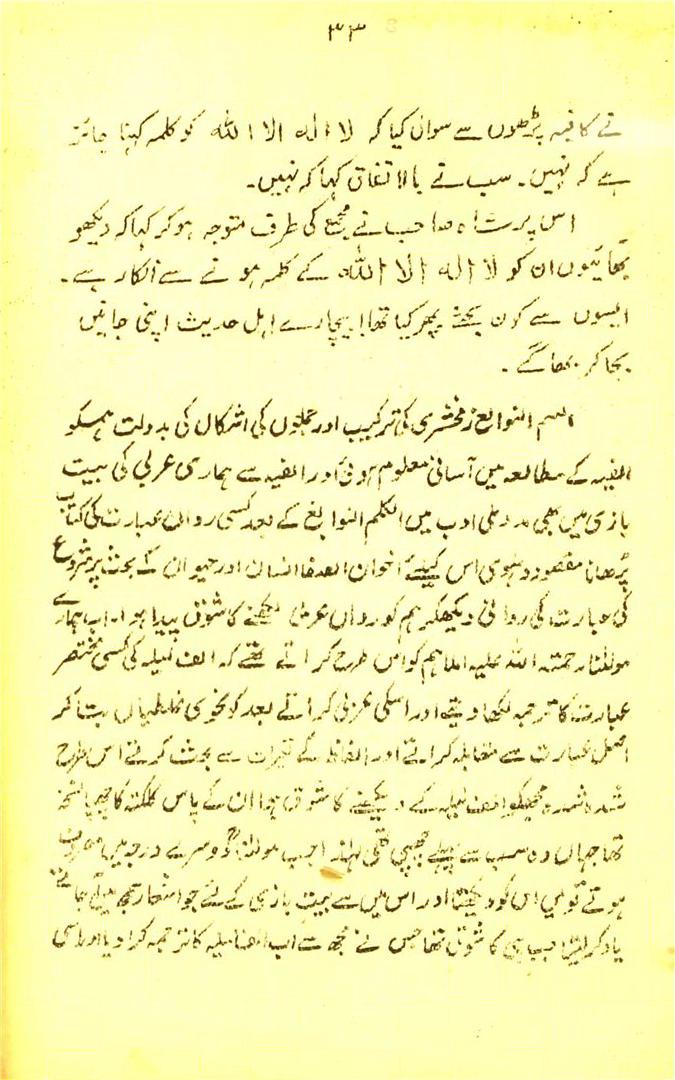 ۳۳
نے کافیہ پڑھوں سے سوال کیا کہ لا الہ الا اللہ کو کلمہ کہنا جائز
ہے کہ نہیں۔ سب نے بالاتفاق کہا کہ نہیں۔
اس پر شاہ صاحب نے مجمع کی طرف متوجہ ہو کر کہا کہ دیکھو
بھائیوں ان کو لا الہ الا اللہ کے کلمہ ہونے سے انکار ہے۔
ایسوں سے کون بحث پھر کیا تھا بیچارے اہل حدیث اپنی جانیں
بچا کر بھاگے۔
النوابغ زمخشری کی ترکیب اور جملوں کی اشکال کی بدولت ہمکو
الفیہ کے مطالعہ میں آسانی معلوم ہوئی اور الفیہ سے ہماری عربی کی بیت
بازی میں بھی مدد ملی ادب میں الکلم النوابغ کے بعد کسی رواں عبارت کی کتاب
پڑھانا مقصود ہوی اس لیئے اخوان الصفا انسان اور حیوان کے بحث پر شروع
کی عبارت کی روانی دیکھکر ہم کو رواں عربی لکھنے کا شوق پیدا ہوا۔ اب ہمارے
مولٰنا رحمتہ اللہ علیہ املا ہم کو اس طرح کراتے تھے کہ الف لیلہ کی کسی مختصر
عبارت کا ترجمہ لکھا دیتے اور اسکی عربی کراتے بعد کو نحوی غلطیاں بتا کر
اصل عبارت سے مقابلہ کراتے اور الفاظ کے تغیرات سے بحث کرتے اس طرح
شدہ شدہ مجھکو الف لیلہ کے دیکھنے کا شوق ہوا ان کے پاس کلکتہ کا چھپا نسخہ
تھا جہاں وہ سب سے پہلے چھپی تھی لہٰذا جب مولٰنا دوسرے درجہ میں مصروف
ہوتے تو میں اس کو دیکھتا اور اس میں سے بیت بازی کے لئے جو اشعار سمجھ میں آ جاتے
یاد کر لیتا جب ہی کا شوق تھا جس نے مجھ سے اب الف لیلہ کا ترجمہ کرا دیا اور اسی